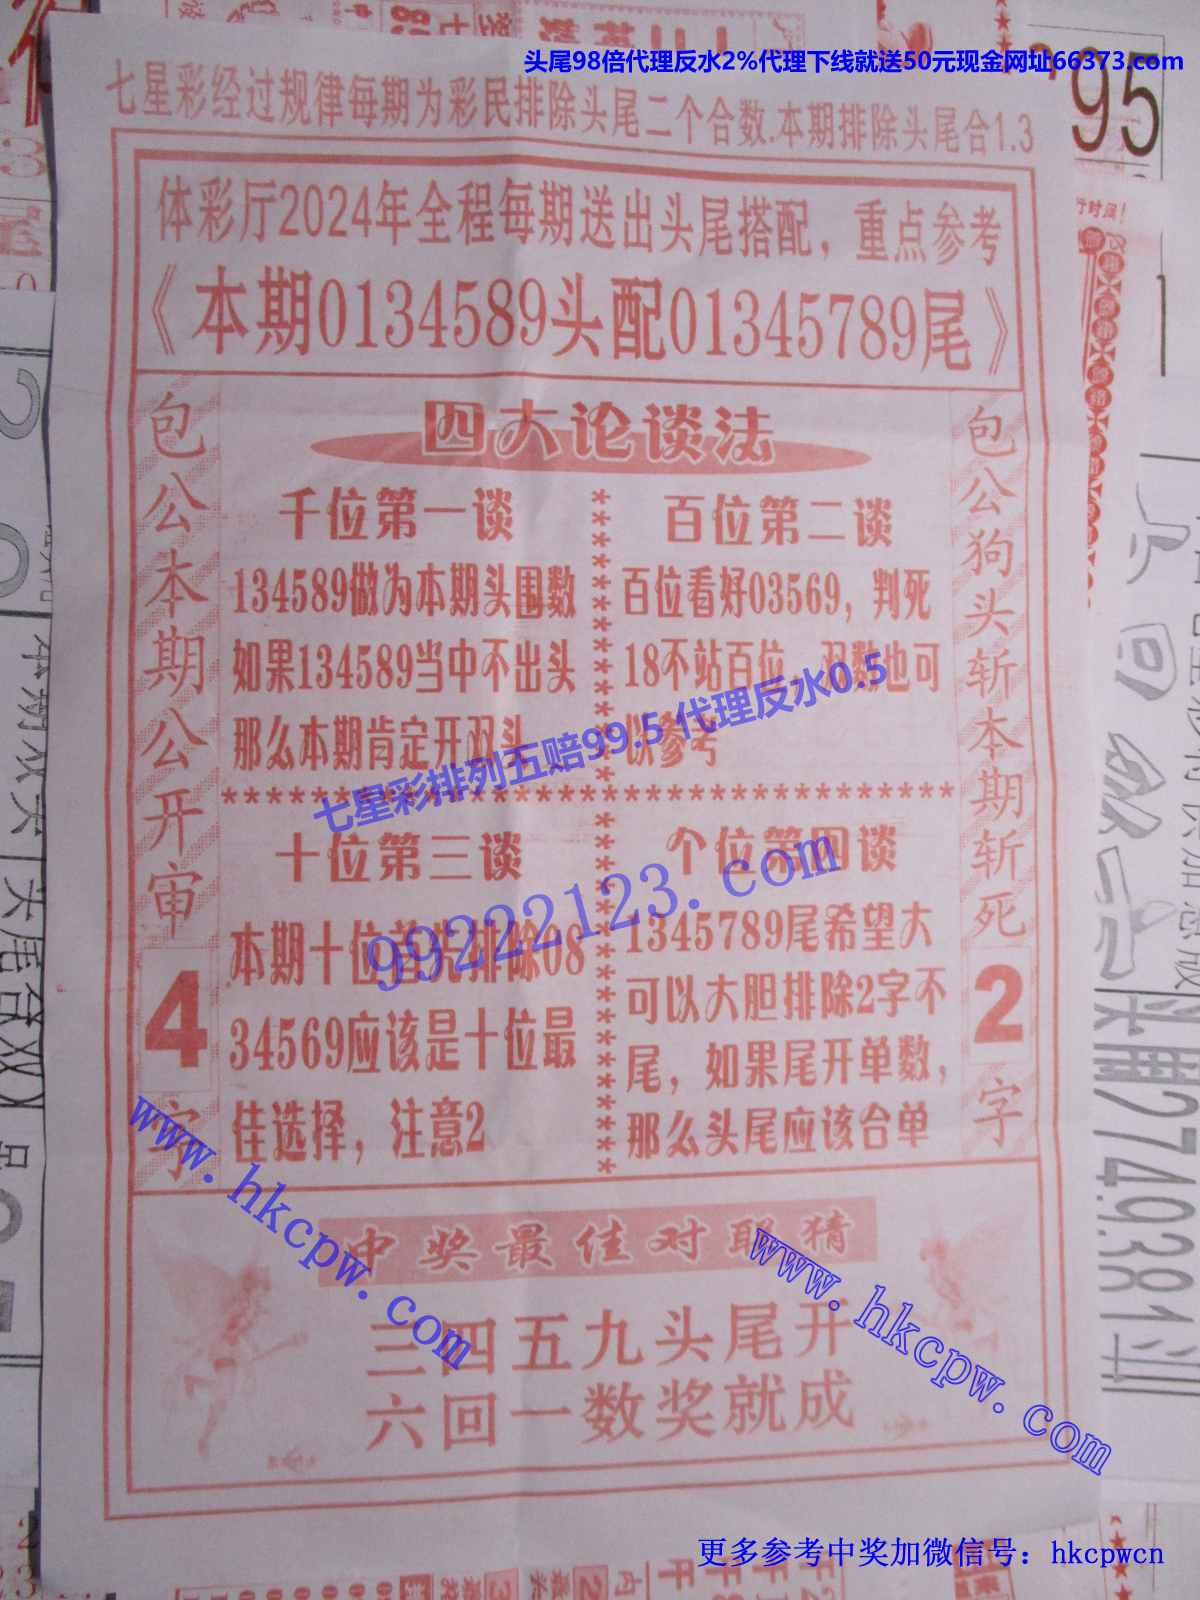 头尾98倍代理反水2%代理下线就送50元现金网址66373.com
七星彩经过规律每期为彩民排除头尾二个合数.本期排除头尾合1.3
95
体彩厅2024年全程每期送出头尾搭配，重点参考
《本期0134589头配01345789尾》
包公本期公开审
4
字
四大论谈法
千位第一谈
134589做为本期头围数
如果134589当中不出头
那么本期肯定开双头
百位第二谈
百位看好03569，判死
18不站百位，双数也可
以参考
七星彩排列五赔99.5 代理反水0.5
十位第三谈
本期十位首先排除08
34569应该是十位最
佳选择，注意2
个位第四谈
1345789尾希望大
可以大胆排除2字不
尾，如果尾开单数，
那么头尾应该合单
99222123.com
包公狗头斩本期斩死
2
字
www.hkcpw.com
www.hkcpw.com
中奖最佳对联猜
三四五九头尾开
六回一数奖就成
更多参考中奖加微信号：hkcpwcn